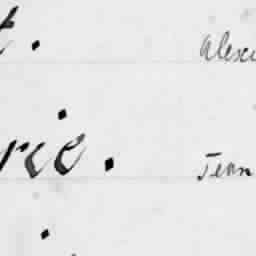 t. Alexi
rie. Jean